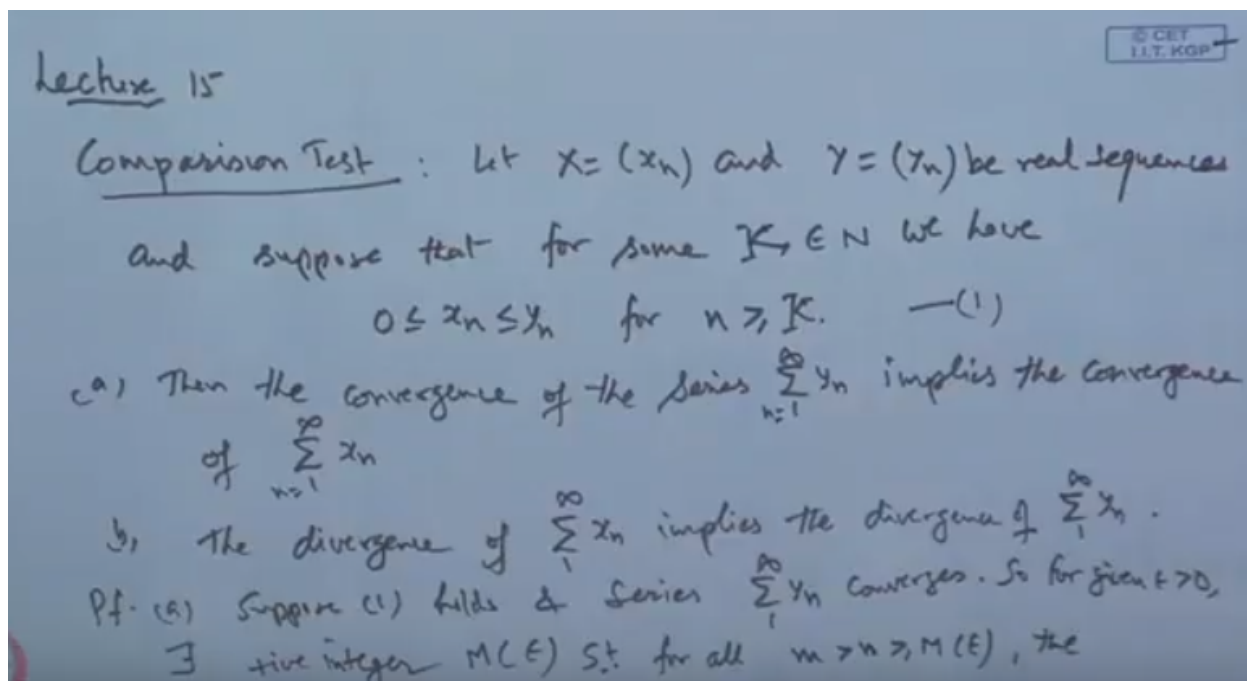 © CET
I.I.T. KGP
Lecture 15
Comparision Test : Let X = (xn) and Y = (yn) be real sequences
and suppose that for some K ∈ N we have
0 ≤ xn ≤ yn for n ≥ K. —(1)
(a) Then the convergence of the series ∑_{n=1}^{∞} yn implies the convergence
of ∑_{n=1}^{∞} xn
b, The divergence of ∑_{1}^{∞} xn implies the divergence of ∑_{1}^{∞} yn .
Pf. (a) Suppose (1) holds & Series ∑_{1}^{∞} yn converges. So for given ε >0,
∃ +ive integer M(ε) s.t. for all m > n ≥ M(ε), the